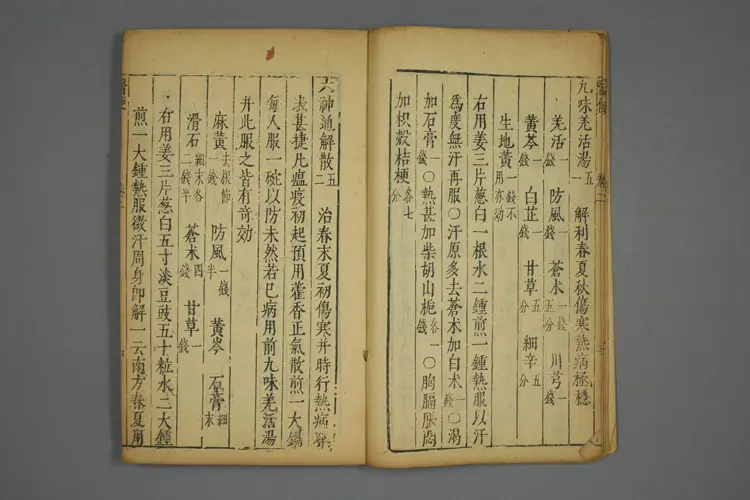 九味羌活湯 五一 解利春夏秋傷寒熱病極穩
羌活一錢 防風一錢 蒼朮一錢五分 川芎一錢
黃芩一錢 白芷一錢 甘草五分 細辛五分
生地黃一錢不用亦効
右用姜三片葱白一根水二鍾煎一鍾熱服以汗
爲度無汗再服○汗原多去蒼朮加白朮一錢○渴
加石膏一錢○熱甚加柴胡山梔各一錢○胸膈脹悶
加枳殻桔梗各七分
六神通解散 五二 治春末夏初傷寒并時行熱病發
表甚捷凡瘟疫初起預用藿香正氣散煎一大鍋
每人服一碗以防未然若已病用前九味羌活湯
并此服之皆有奇効
麻黃去根節一錢 防風一錢半 黃芩 石膏細末
滑石細末各二錢半 蒼朮四錢 甘草一錢
右用姜三片葱白五寸淡豆豉五十粒水二大鍾
煎一大鍾熱服微汗周身即解一云南方春夏用